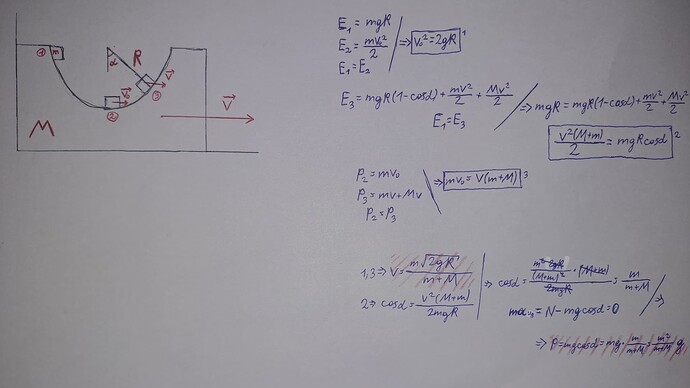 ① m
α
R
v⃗
v⃗₀
③
②
V⃗
M
E₁ = mgR
E₂ = mv₀²/2 ⇒ v₀² = 2gR ¹
E₁ = E₂
E₃ = mgR(1-cosα) + mv²/2 + Mv²/2 ⇒ mgR = mgR(1-cosα) + mv²/2 + Mv²/2
E₁ = E₃
v²(M+m)/2 = mgRcosα ²
p₂ = mv₀
p₃ = mv + Mv ⇒ mv₀ = V(m+M) ³
p₂ = p₃
1,3 ⇒ V = m√2gR/m+M
2 ⇒ cosα = v²(M+m)/2mgR ⇒ cosα = m²·2gR/(M+m)² · (M+m)/2mgR = m/m+M
= N - mgcosα = 0 ⇒
⇒ P = mgcosα = mg · m/m+M = m²/m+M g